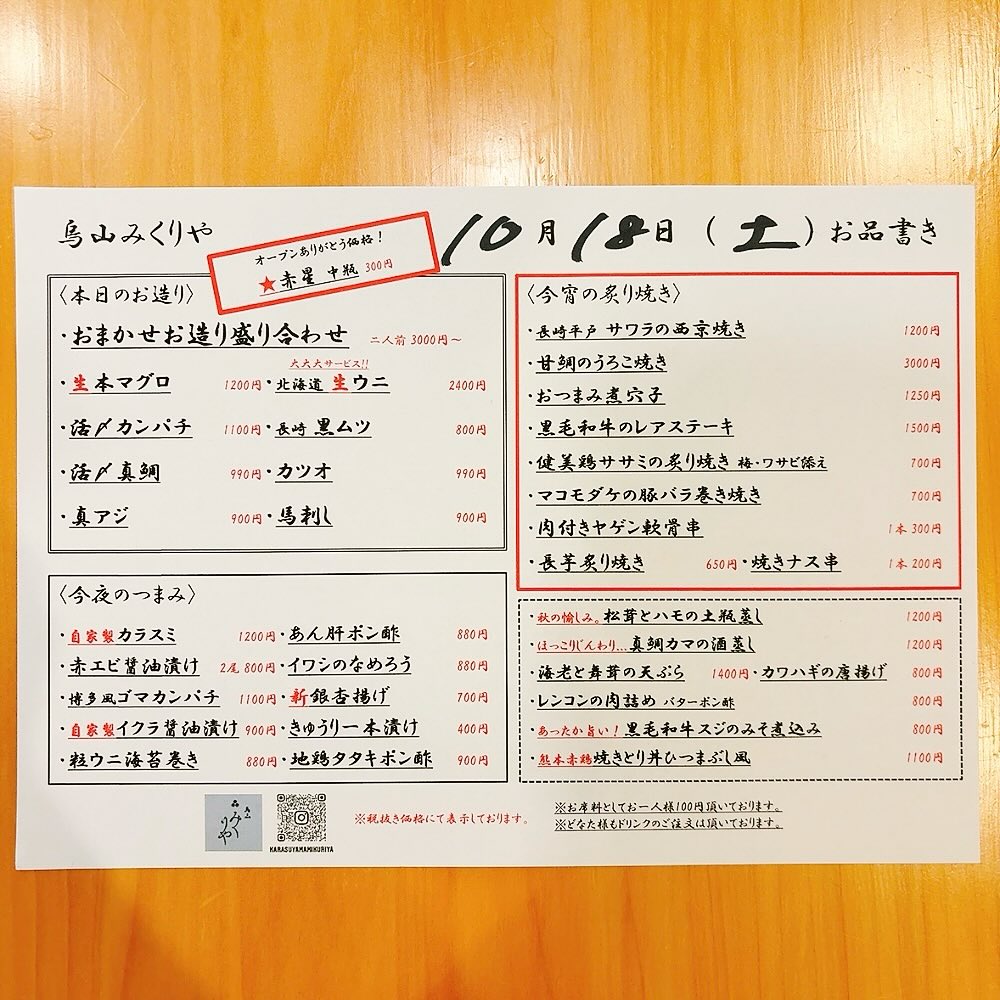 烏山みくりや
オープンありがとう価格！
★赤星 中瓶 300円
10月18日（土）お品書き
〈本日のお造り〉
・おまかせお造り盛り合わせ 二人前 3000円～
・生本マグロ 1200円
大大大サービス!!
・北海道 生ウニ 2400円
・活〆カンパチ 1100円・長崎 黒ムツ 800円
・活〆真鯛 990円・カツオ 990円
・真アジ 900円・馬刺し 900円
〈今夜のつまみ〉
・自家製カラスミ 1200円・あん肝ポン酢 880円
・赤エビ醤油漬け 2尾 800円・イワシのなめろう 880円
・博多風ゴマカンパチ 1100円・新銀杏揚げ 700円
・自家製イクラ醤油漬け 900円・きゅうり一本漬け 400円
・粒ウニ海苔巻き 880円・地鶏タタキポン酢 900円
〈今宵の炙り焼き〉
・長崎平戸 サワラの西京焼き 1200円
・甘鯛のうろこ焼き 3000円
・おつまみ煮穴子 1250円
・黒毛和牛のレアステーキ 1500円
・健美鶏ササミの炙り焼き 梅・ワサビ添え 700円
・マコモダケの豚バラ巻き焼き 700円
・肉付きヤゲン軟骨串 1本 300円
・長芋炙り焼き 650円・焼きナス串 1本 200円
・秋の愉しみ。松茸とハモの土瓶蒸し 1200円
・ほっこりじんわり…真鯛カマの酒蒸し 1200円
・海老と舞茸の天ぷら 1400円・カワハギの唐揚げ 800円
・レンコンの肉詰め バターポン酢 800円
・あったか旨い！黒毛和牛スジのみそ煮込み 800円
・熊本赤鶏焼きとり丼ひつまぶし風 1100円
烏山
みくりや
KARASUYAMAMIKURIYA
※税抜き価格にて表示しております。
※お席料としてお一人様100円頂いております。
※どなた様もドリンクのご注文は頂いております。